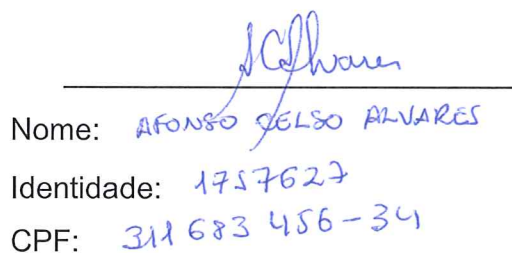 ACAlvares
Nome: AFONSO CELSO ALVARES
Identidade: 1757627
CPF: 311 683 456-34